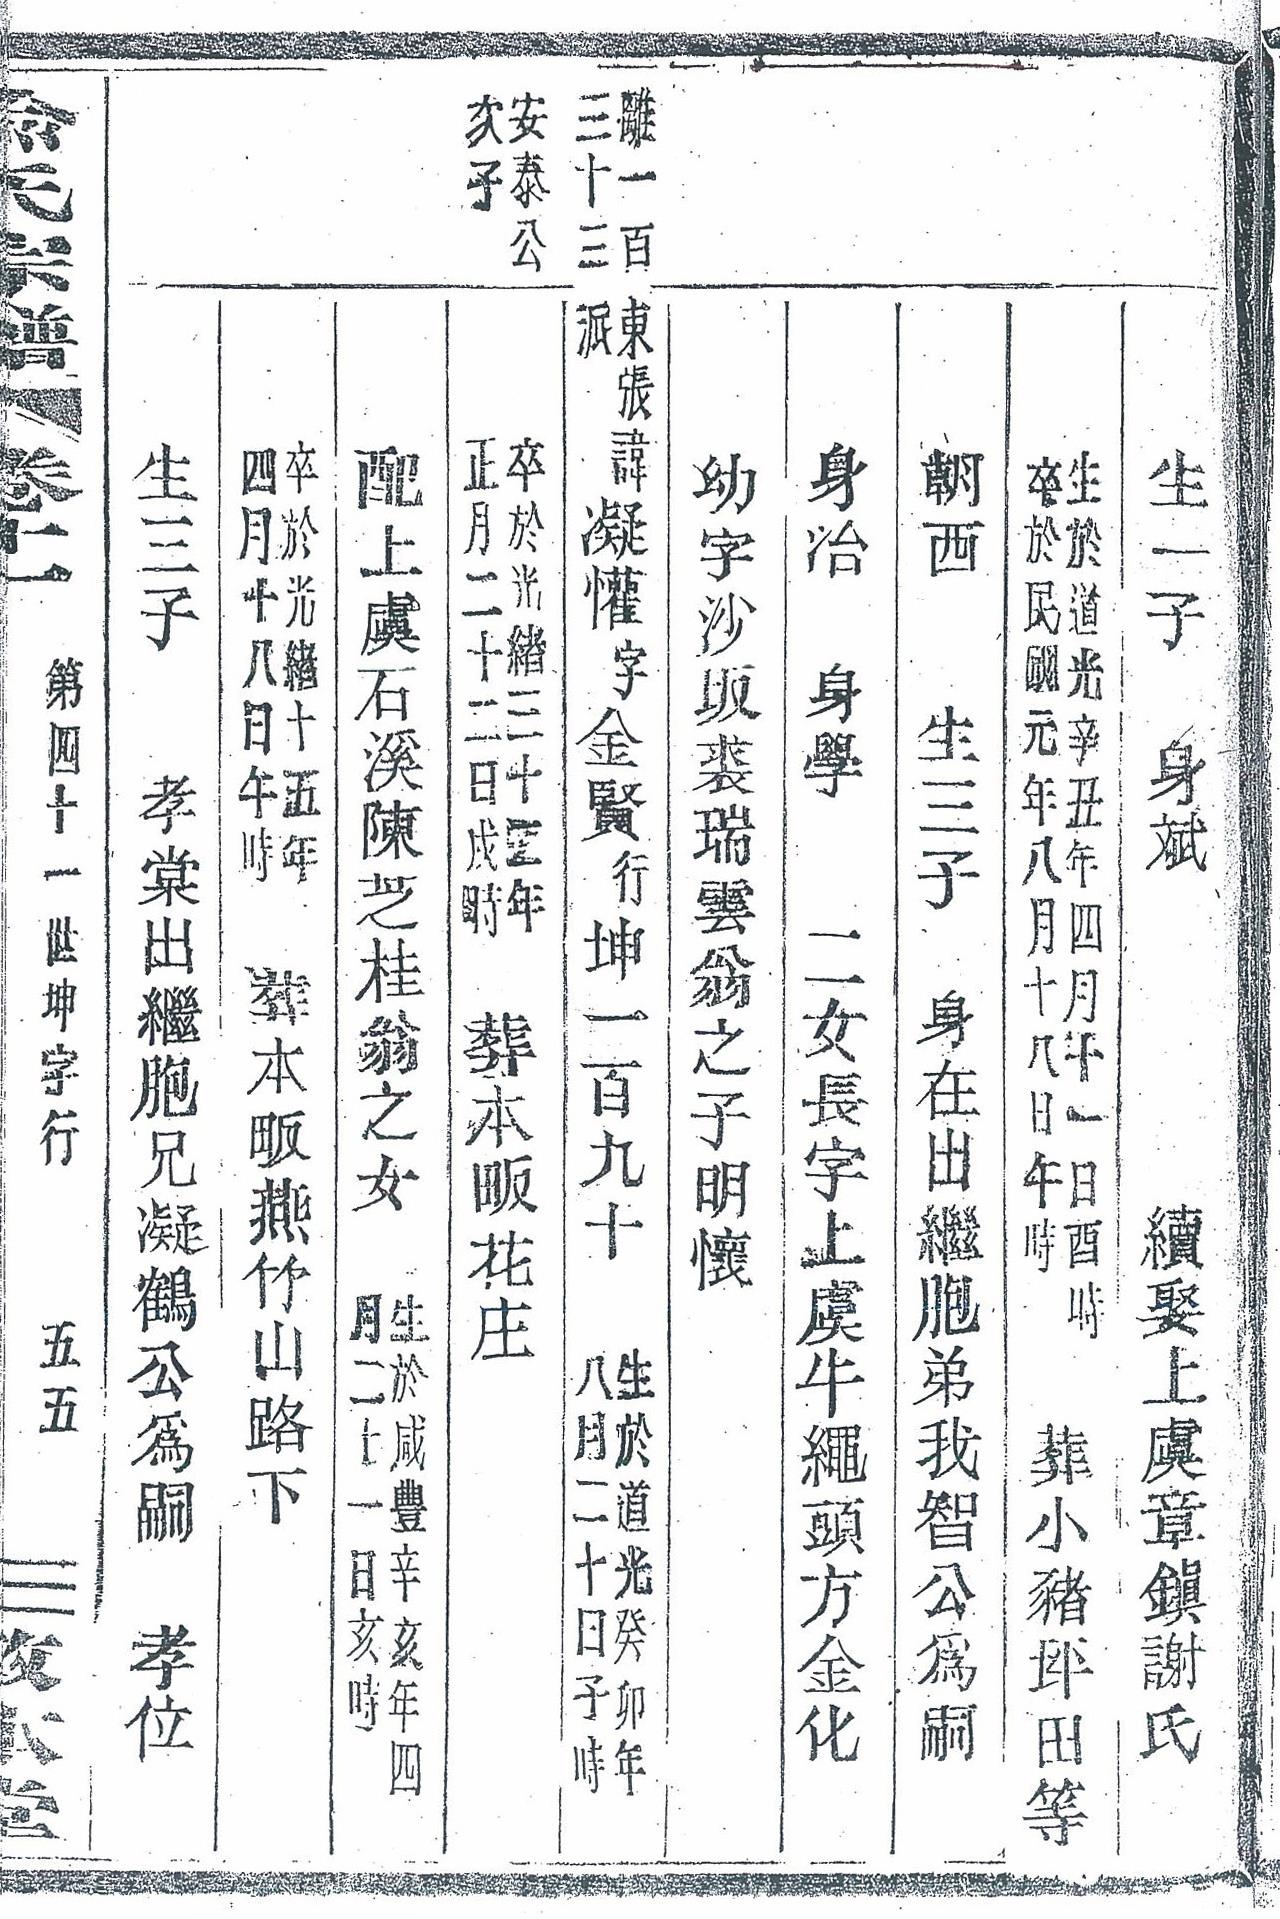 生一子　身斌　續娶上虞章鎮謝氏
生於道光辛丑年四月十一日酉時
卒於民國元年八月十八日午時
葬小豬邱田等
朝西　生三子　身在出繼胞弟我智公為嗣
身冶　身學　二女長字上虞牛繩頭方金化
幼字沙坂裘瑞雲翁之子明懷
離一百
三十三
東張
派
諱凝懽字金賢行坤一百九十
生於道光癸卯年
八月二十日子時
安泰公
次子
卒於光緒三十三年
正月二十二日戌時
葬本畈花庄
配上虞石溪陳芝桂翁之女
生於咸豐辛亥年四
月二十一日亥時
卒於光緒十五年
四月十八日午時
葬本畈燕竹山路下
生三子　孝棠出繼胞兄凝鶴公爲嗣　孝位
氏宗譜　卷十一　第四十一世坤字行　五五　敦本堂